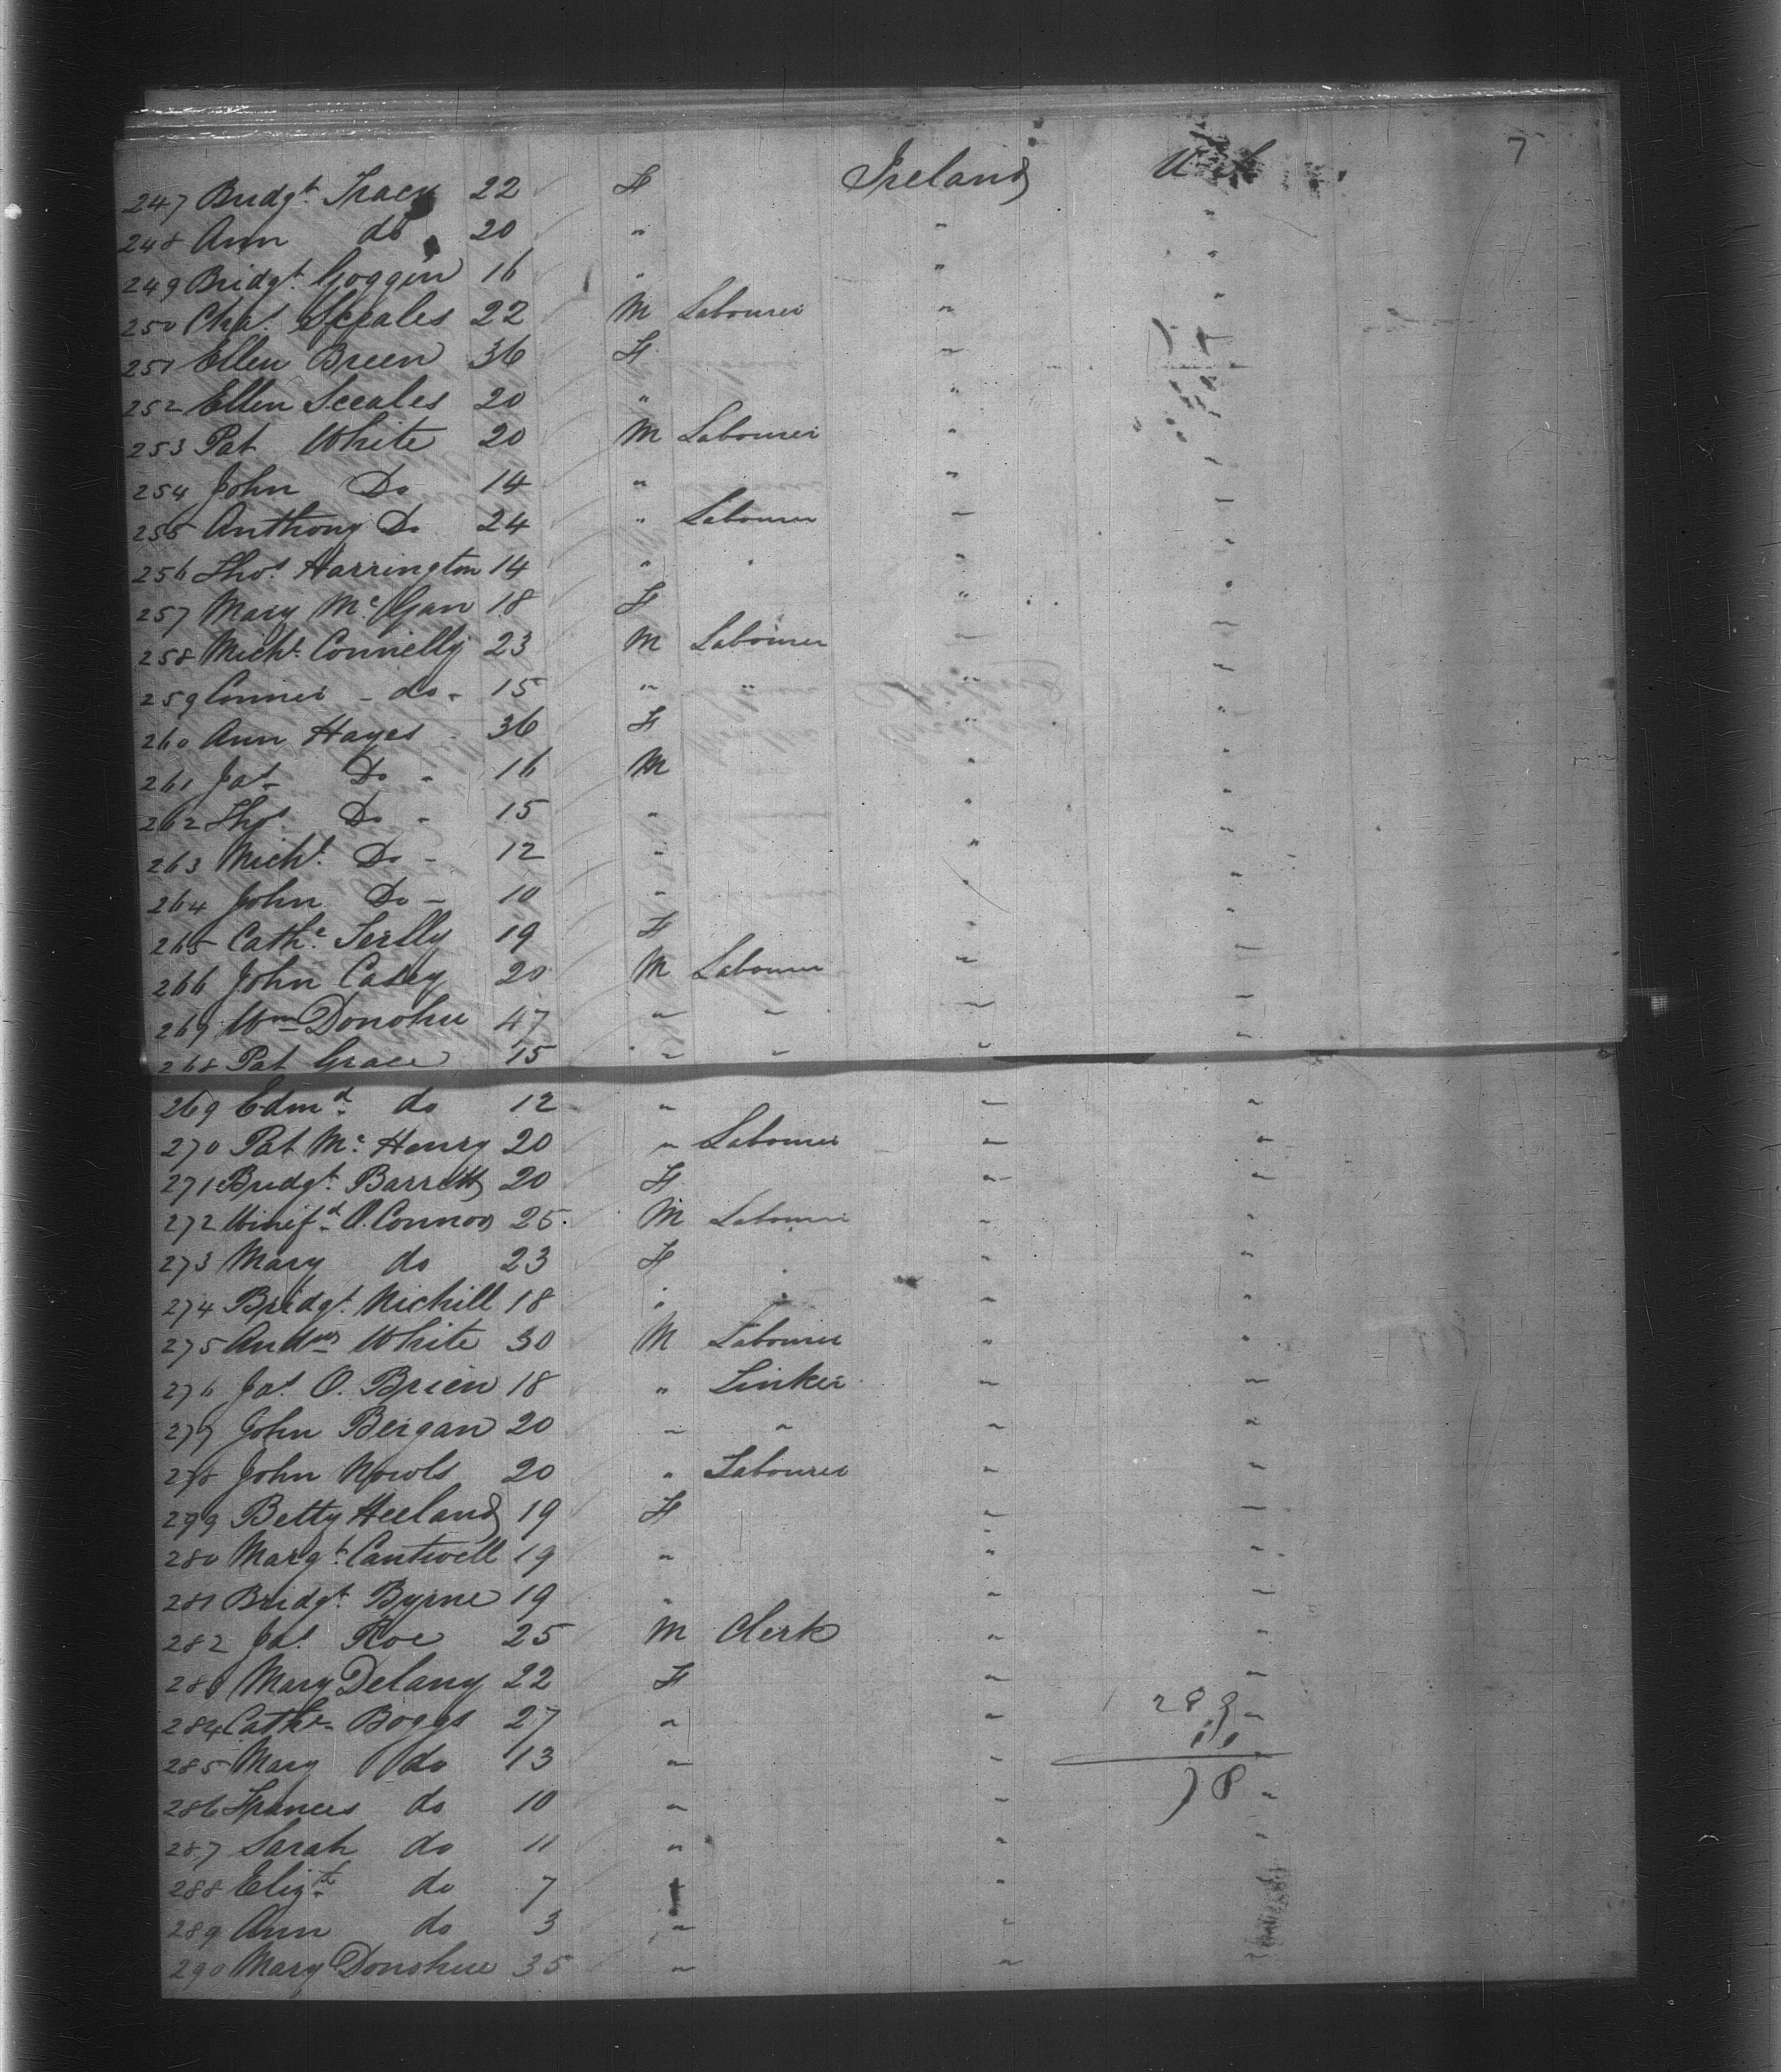 7
247 Bridgt. Tracy 22 F Ireland U S
248 Ann do 20 " " "
249 Bridgt. Goggin 16 " " "
250 Chas. Sceales 22 M Labourer " "
251 Ellen Breen 36 F "
252 Ellen Sceales 20 " " "
253 Pat White 20 M Labourer " "
254 John Do 14 " " "
255 Anthony Do 24 " Labourer " "
256 Thos. Harrington 14 " " "
257 Mary Mc. Gan 18 F " "
258 Michl. Connelly 23 M Labourer " "
259 Conner - do - 15 " " " "
260 Ann Hayes - 36 F " "
261 Jas. Do - 16 M " "
262 Thos Do - 15 " " "
263 Michl. Do - 12 " " "
264 John Do - 10 " " "
265 Cathe. 19 F " "
266 John Casey 20 M Labourer " "
267 Wm Donohue 47 " " " "
268 Pat Grace 15 " " " "
269 Edmd. do 12 " " "
270 Pat Mc. Henry 20 " Labourer " "
271 Bridgt. Barrett 20 F " "
272 Winifd. O. Connor 25 M Labourer " "
273 Mary do 23 F " "
274 Bridgt. Nichill 18 " " "
275 Andw White 30 M Labourer " "
276 Jas. O. Brien 18 " Tinker " "
277 John Bergan 20 " " " "
278 John Nowls 20 " Labourer " "
279 Betty Heeland 19 F " "
280 Margt. Cantwell 19 " " "
281 Bridgt. Byrne 19 " " "
282 Jas. Roe 25 M Clerk " "
283 Mary Delany 22 F " "
284 Cathe. Boggs 27 " " "
285 Mary do 13 " " "
286 Frances do 10 " " 78 "
287 Sarah do 11 " " "
288 Elizth. do 7 " "
289 Ann do 3 " "
290 Mary Donohue 35 " "